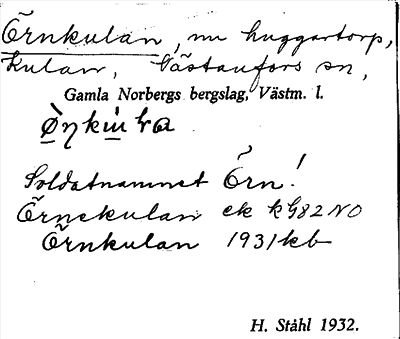 Örnkulan, nu huggartorp,
Kulan, Västanfors sn,
Gamla Norbergs bergslag, Västm. l.
Soldatnamnet Örn!
Örnekulan ek kG82 NO
Örnkulan 1931 kb
H. Ståhl 1932.